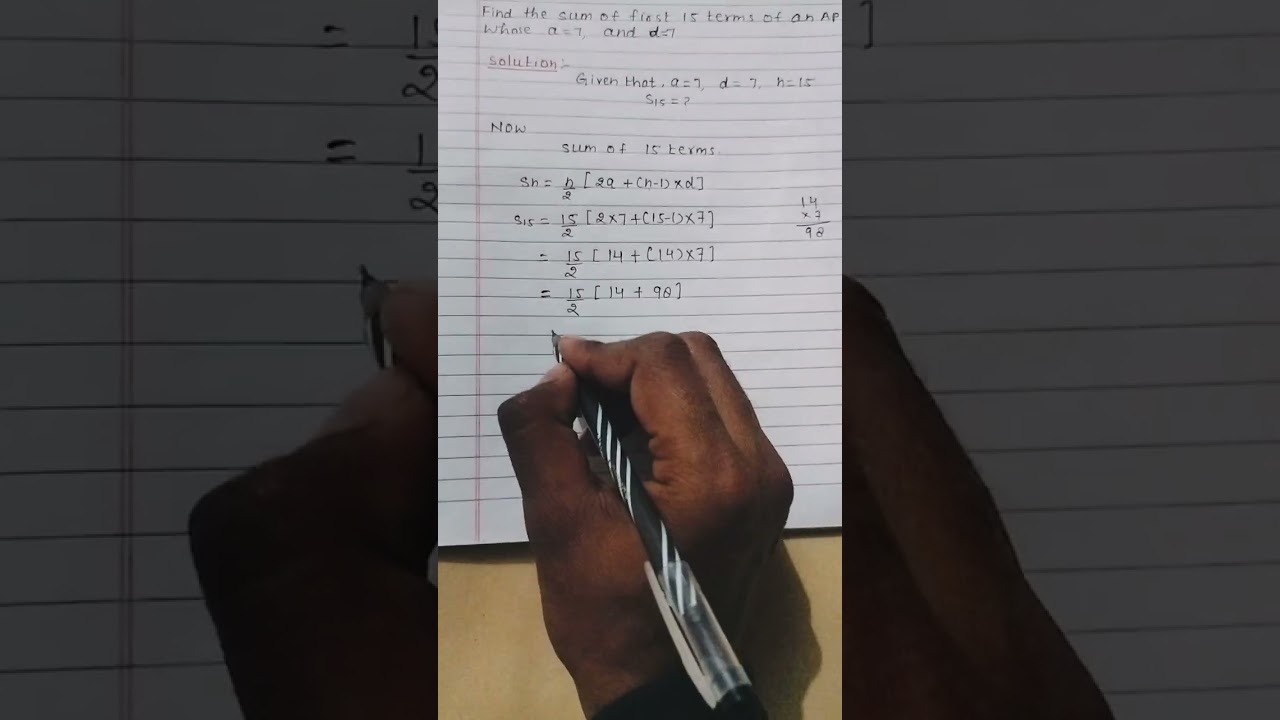 Find the sum of first 15 terms of an AP
whose a=7, and d=7
Solution:-
Given that, a=7, d=7, n=15
S15 = ?
Now
sum of 15 terms.
Sn = n/2 [2a + (n-1)×d]
S15 = 15/2 [2×7+(15-1)×7]
= 15/2 [14 + (14)×7]
= 15/2 [14 + 98]
14
×7
98